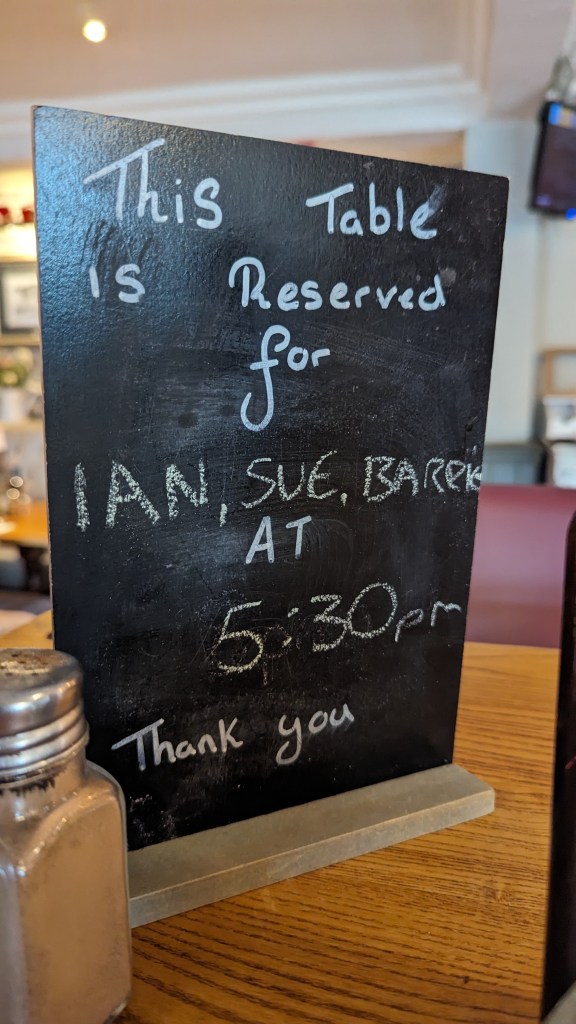 This Table
is Reserved
for
IAN, SUE, BARRIE
AT
5:30pm
Thank you